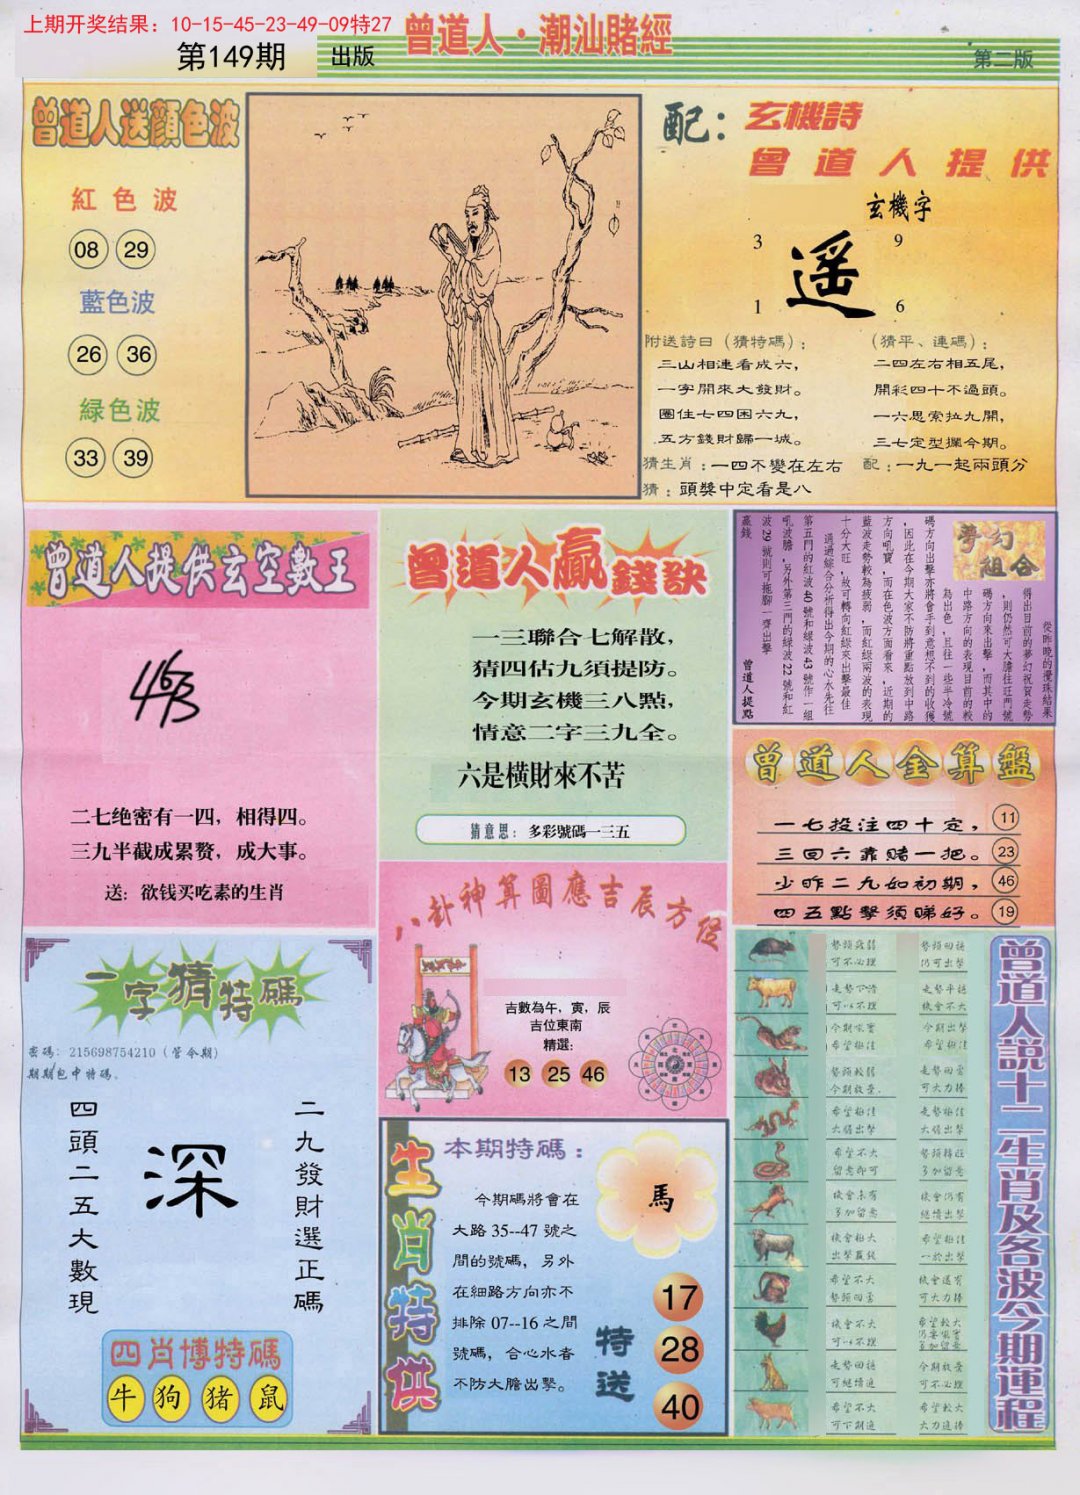 上期开奖结果：10-15-45-23-49-09特27
曾道人·潮汕賭經
第149期
出版
第二版
曾道人送顔色波
紅色波
08 29
藍色波
26 36
緑色波
33 39
配：玄機詩
曾道人提供
玄機字
3 9
遥
1 6
附送詩曰（猜特碼）；
三山相連看成六，
一字開來大發財。
圈住七四困六九，
五方錢財歸一城。
（猜平、連碼）；
二四左右相五尾，
開彩四十不過頭。
一六思索拉九開，
三七定型擱今期。
猜生肖：一四不變在左右
配：一九一起兩頭分
猜：頭獎中定看是八
曾道人提供玄空數王
463
二七绝密有一四，相得四。
三九半截成累赘，成大事。
送：欲钱买吃素的生肖
曾道人贏錢訣
一三聯合七解散，
猜四估九須提防。
今期玄機三八點，
情意二字三九全。
六是橫財來不苦
猜意思：多彩號碼一三五
夢幻組合
從昨晚的攪珠結果
得出目前的夢幻祝賀走勢
，則仍然可大膽往旺門號
碼方向來出擊，而其中的
中路方向的表現目前的較
為出色，且往一些半冷號
碼方向出擊亦將會手到意想不到的收獲
，因此在今期大家不防將重點放到中路
方向吼寶，而在色波方面看來，近期的
藍波走勢較為疲弱，而紅綠兩波的表現
十分大旺，故可轉向紅綠來出擊最佳
通過綜合分析得出今期的心水先往
第五門的紅波40號和綠波43號作一組
吼波膽，另外第三門的綠波22號和紅
波29號則可拖腳一齊出擊
贏錢
曾道人提點
曾道人金算盤
一七投注四十定，11
三回六靠賭一把。23
少昨二九如初期，46
四五點擊須睇好。19
八卦神算圖應吉辰方位
吉數為午，寅，辰
吉位東南
精選：
13 25 46
一字猜特碼
密碼：215698754210（管令期）
期期包中特碼。
四頭二五大數現
深
二九發財選正碼
四肖博特碼
牛 狗 猪 鼠
生肖特供
本期特碼：
今期碼將會在
大路35--47號之
間的號碼，另外
在細路方向亦不
排除07--16之間
號碼，合心水者
不防大膽出擊。
馬
特送
17
28
40
曾道人説十二生肖及各波今期運程